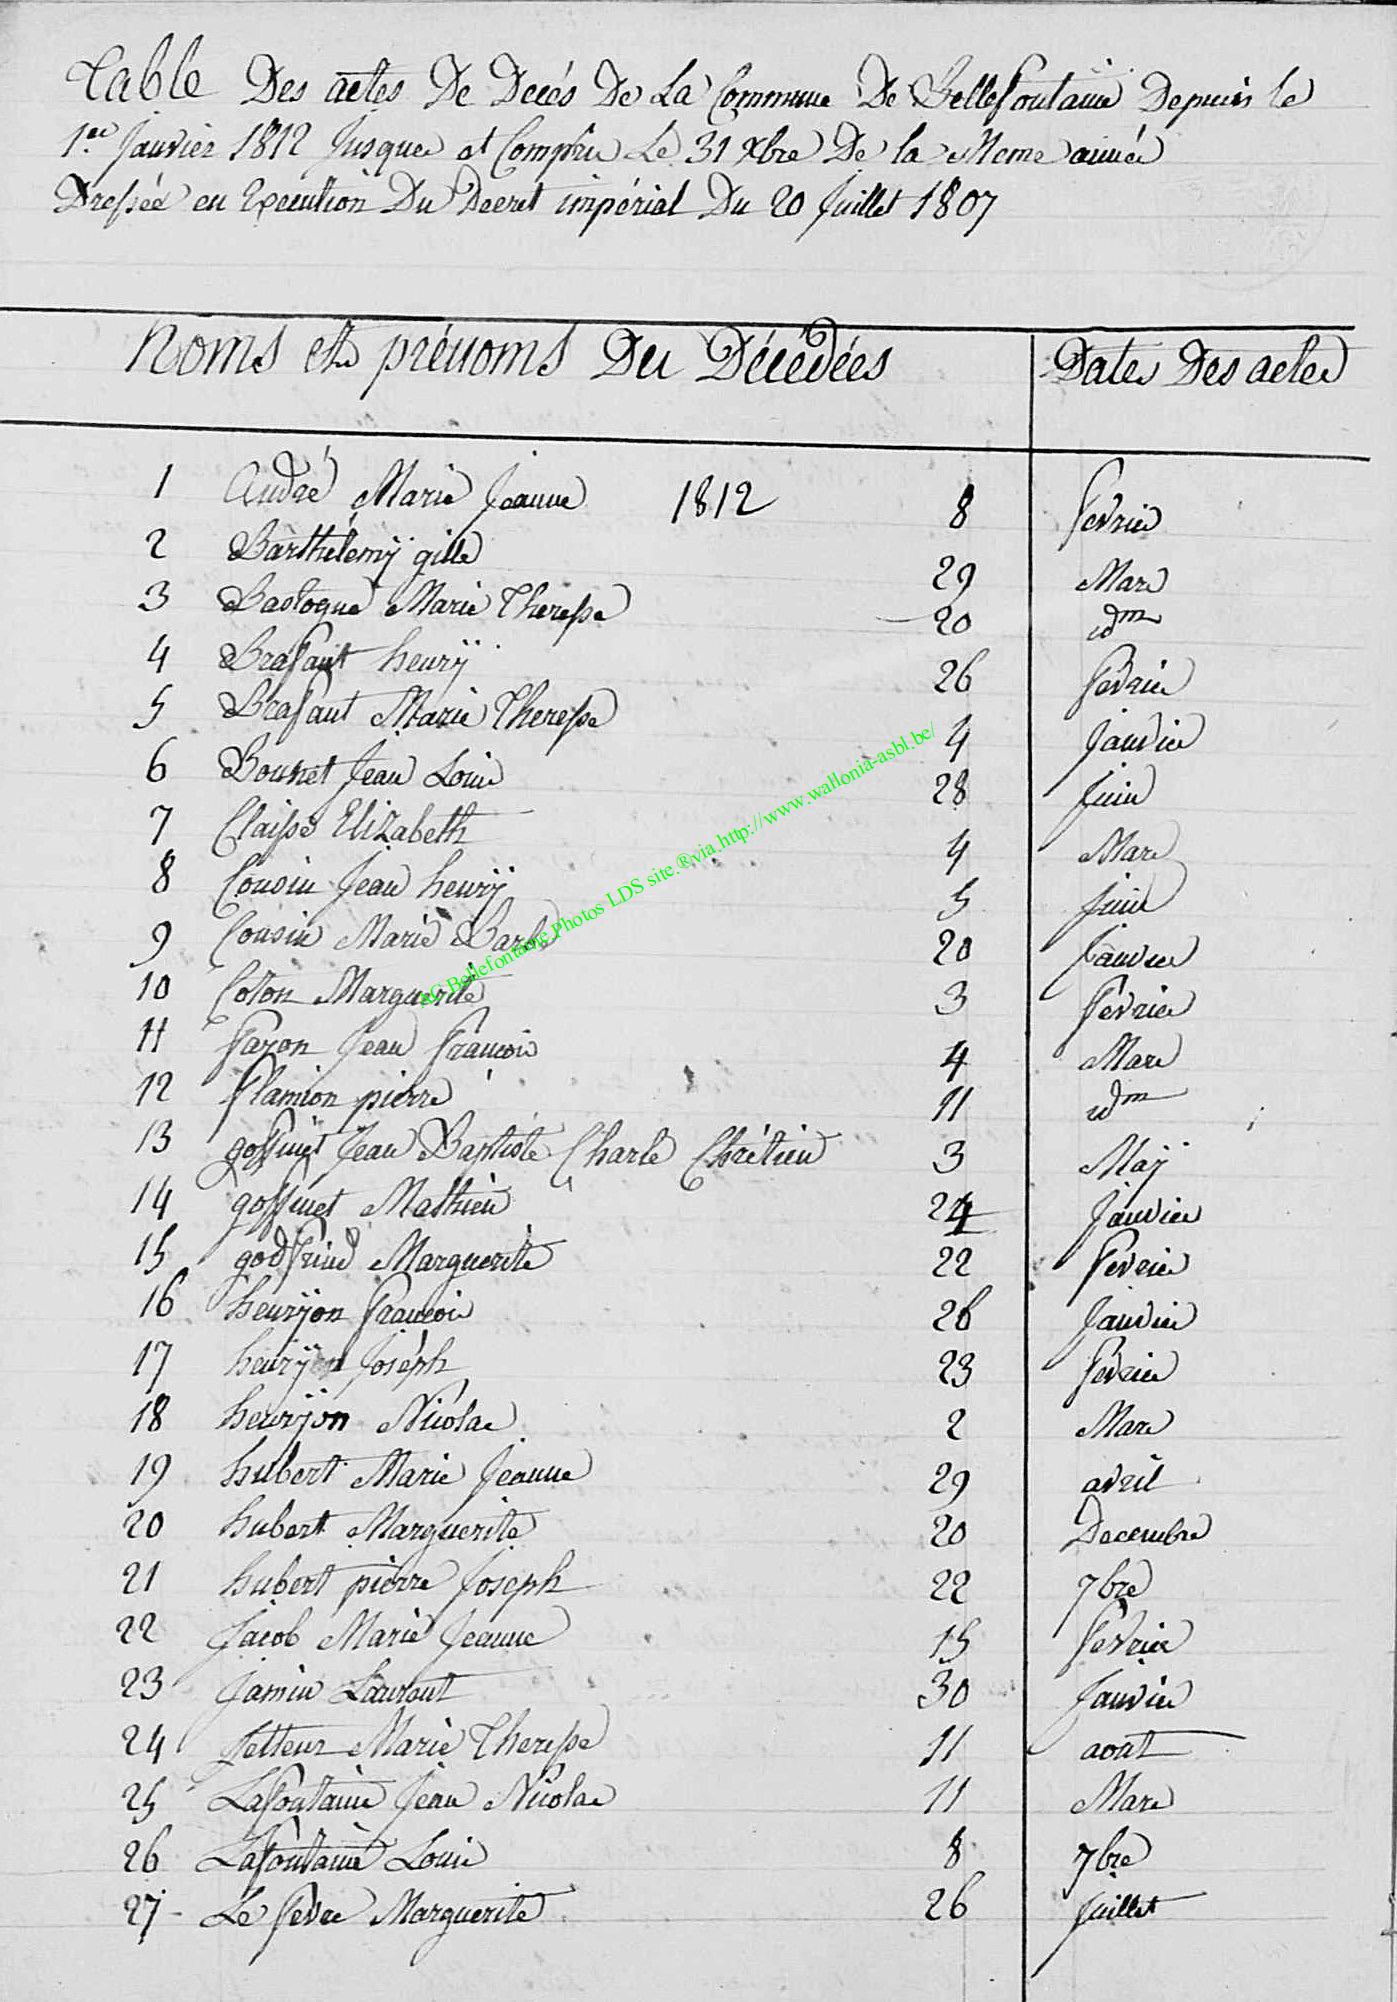 Table Des actes De Decés De La Commune De Bellefontaine Depuis le
1er Janvier 1812 Jusques et Compris Le 31 Xbre De la Meme année
Dressée en Execution Du Decret impérial Du 20 Juillet 1807
Noms et prénoms Des Décédées Dates Des actes
1 André Marie Jeanne 1812 8 fevrier
2 Barthélemÿ gille 29 Mars
3 Bastogne Marie Theresse 20 idm
4 Brafaut henrÿ 26 fevrier
5 Brafaut Marie Theresse 4 Janvier
6 Bournet Jean Louis 28 Juin
7 Claisse Elizabeth 4 Mars
8 Cousin Jean henrÿ 5 Juin
9 Cousin Marie Barbe 20 Janvier
10 Coton Marguerite 3 fevrier
11 fazon Jean francois 4 Mars
12 flamion pierre 11 idm
13 goffinet Jean Baptiste Charle Chrétien 3 Maÿ
14 goffinet Mathieu 24 Janvier
15 godfrind Marguerite 22 fevrier
16 henrÿon francois 26 Janvier
17 henrÿon Joséph 23 fevrier
18 henrÿon Nicolas 2 Mars
19 hubert Marie Jeanne 29 avril
20 hubert Marguerite 20 Decembre
21 hubert pierre Joseph 22 7bre
22 Jacob Marie Jeanne 15 fevrier
23 Jamin Laurent 30 Janvier
24 Jetteur Marie Theresse 11 aout
25 Lafontaine Jean Nicolas 11 Mars
26 Lafontaine Louis 8 7bre
27 Le fevre Marguerite 26 Juillet
EC Bellefontaine Photos LDS site.®via.http://www.wallonia-asbl.be/